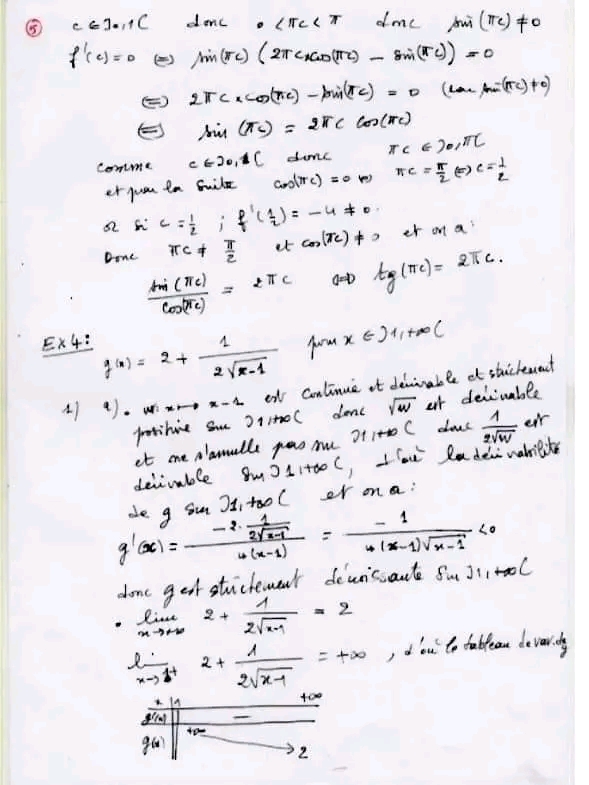 ⑤ c ∈ ]0,1[ donc 0 < πc < π donc sin(πc) ≠ 0
f'(c) = 0 ⇔ sin(πc) (2πc × cos(πc) − sin(πc)) = 0
⇔ 2πc × cos(πc) − sin(πc) = 0 (car sin(πc) ≠ 0)
⇔ sin(πc) = 2πc cos(πc)
comme c ∈ ]0,1[ donc πc ∈ ]0,π[
et par la suite cos(πc) = 0 ⇔ πc = π/2 ⇔ c = 1/2
or si c = 1/2 ; f'(1/2) = −4 ≠ 0.
Donc πc ≠ π/2 et cos(πc) ≠ 0 et on a :
sin(πc)/cos(πc) = 2πc ⇔ tg(πc) = 2πc.
Ex4:
g(x) = 2 + 1/(2√(x−1)) pour x ∈ ]1,+∞[
1) a) • w: x ↦ x−1 est continue et dérivable et strictement
positive sur ]1,+∞[ donc √w est dérivable
et ne s'annulle pas sur ]1,+∞[ donc 1/(2√w) est
dérivable sur ]1,+∞[, d'où la dérivabilité
de g sur ]1,+∞[ et on a :
g'(x) = (−2 · 1/(2√(x−1)))/(4(x−1)) = −1/(4(x−1)√(x−1)) < 0
donc g est strictement décroissante sur ]1,+∞[
• lim x→+∞ 2 + 1/(2√(x−1)) = 2
lim x→1⁺ 2 + 1/(2√(x−1)) = +∞ , d'où le tableau de var. de g
x 1 +∞
g'(x) −
g(x) +∞ → 2